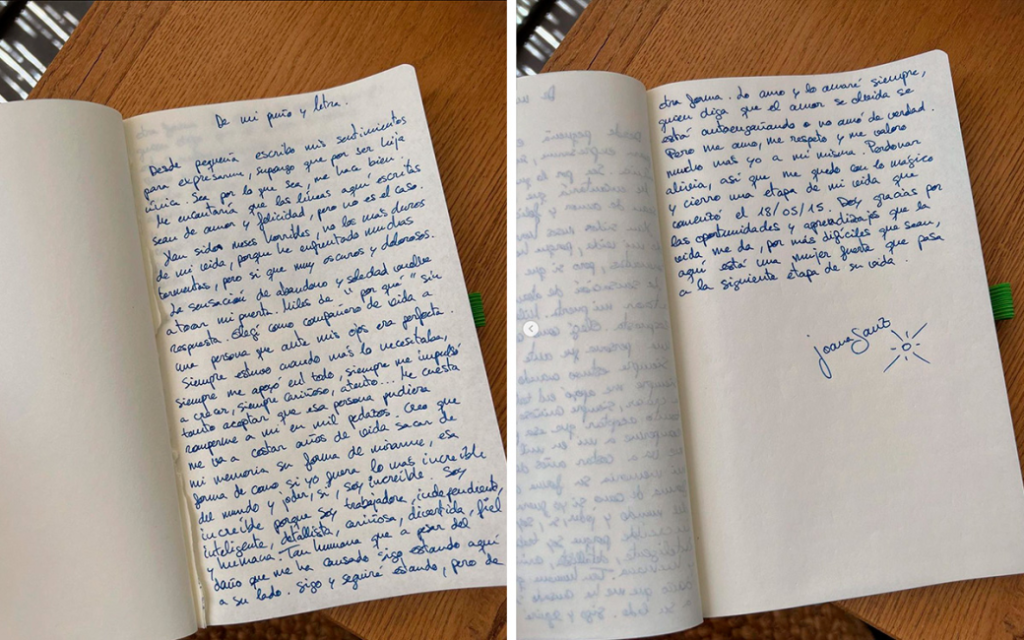 De mi puño y letra.
Desde pequeña escribo mis sentimientos
para expresarme, supongo que por ser hija
única. Sea por lo que sea, me hace bien
Me encantaría que las líneas aquí escritas
sean de amor y felicidad, pero no es el caso.
Han sidos meses horribles, no los mas duros
de mi vida, porque he enfrentado muchas
tormentas, pero si que muy oscuros y dolorosos.
La sensación de abandono y soledad vuelve
a tocar mi puerta. Miles de "por qué" sin
respuesta. Elegí como compañero de vida a
una persona que ante mis ojos era perfecta.
Siempre estuvo cuando más lo necesitaba,
siempre me apoyó en todo, siempre me impulsó
a crecer, siempre cariñoso, atento... Me cuesta
tanto aceptar que esa persona pudiera
romperme a mi en mil pedazos. Creo que
me va a costar años de vida sacar de
mi memoria su forma de mirarme, esa
forma de como si yo fuera lo mas increíble
del mundo y joder, si, soy increíble. Soy
increíble porque soy trabajadora, independiente,
inteligente, detallista, cariñosa, divertida, fiel
y humana. Tan humana que a pesar del
daño que me ha causado sigo estando aquí
a su lado. Sigo y seguiré estando, pero de
otra forma. Lo amo y lo amaré siempre,
quien diga que el amor se olvida se
está autoengañando o no amó de verdad.
Pero me amo, me respeto y me valoro
mucho mas yo a mi misma. Perdonar
alivia, así que me quedo con lo mágico
y cierro una etapa de mi vida que
comentó el 18/05/15. Doy gracias por
las oportunidades y aprendizajes que la
vida me da, por más difíciles que sean,
aquí está una mujer fuerte que pasa
a la siguiente etapa de su vida.
Joana Sanz